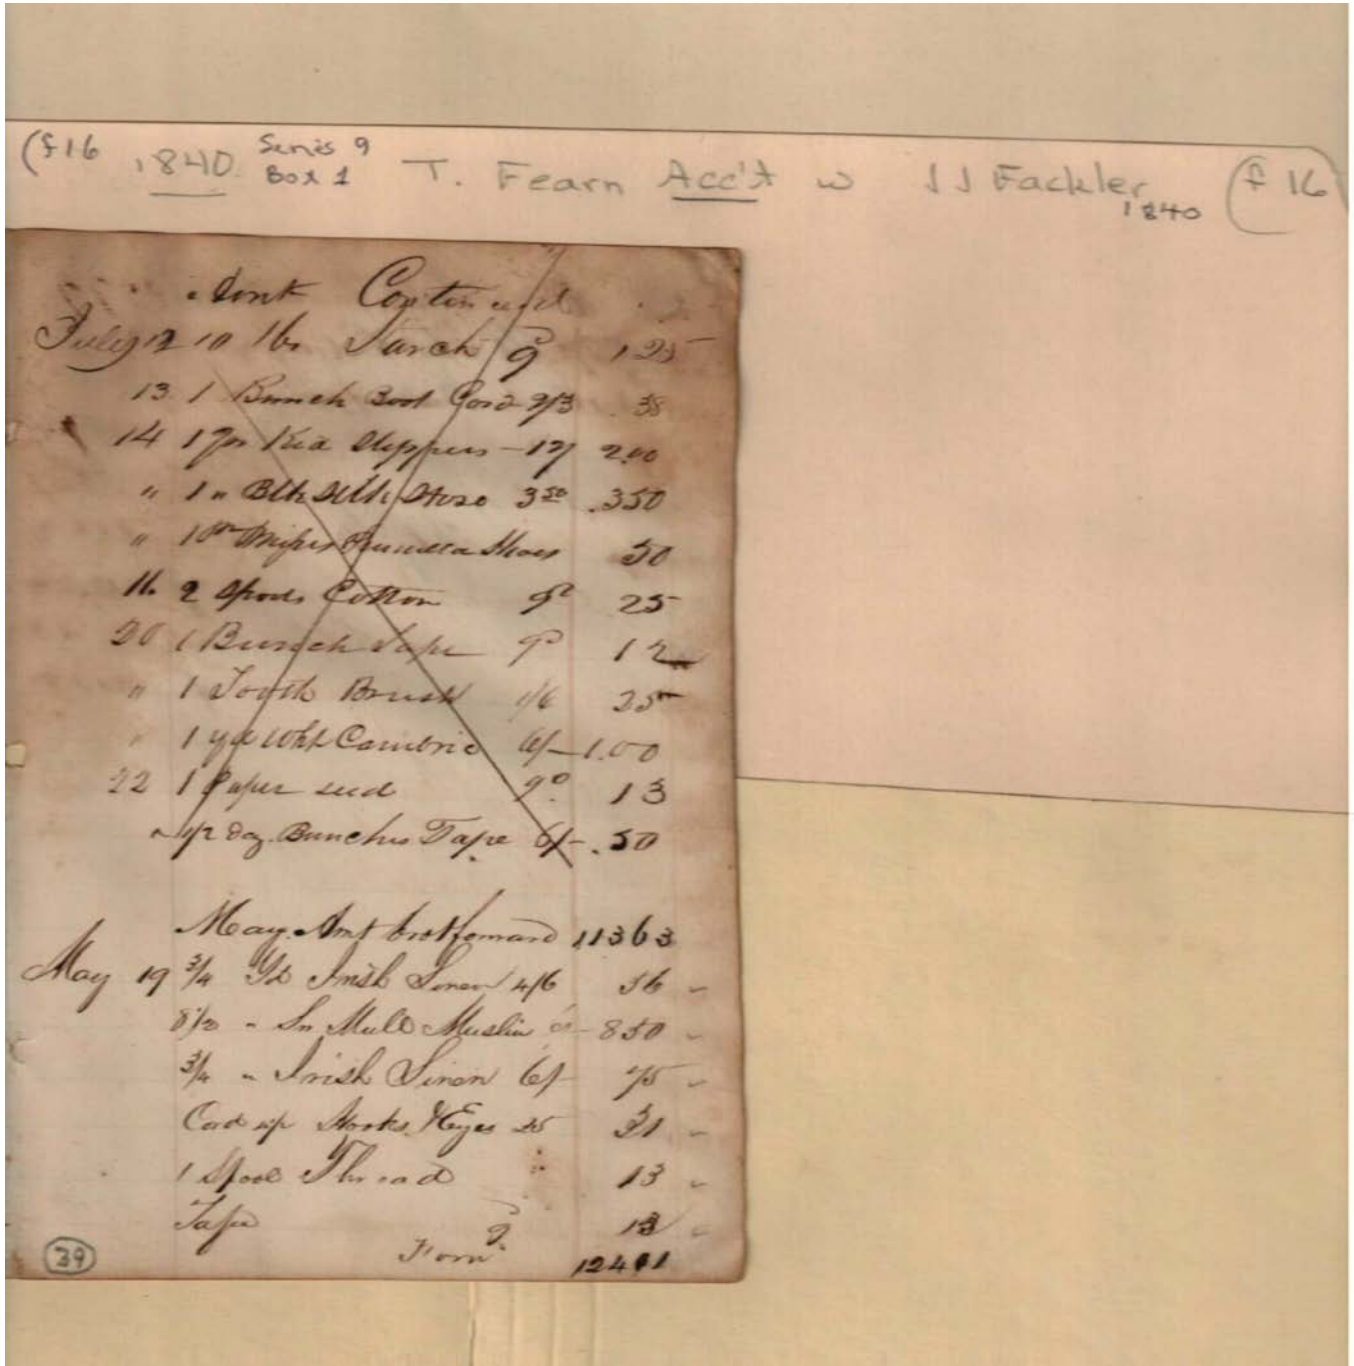 (f16 1840 Series 9 Box 1 T. Fearn Acc't w JJ Fackler 1840 (f 16
Amt
July 12 10 lbs Starch 9d 1 25
13 1 Bunch Boot Cord 2/3 38
14 1 pr Kid Slippers - 12/ 2.00
" 1 " Blk Silk Hose 3 50 .350
" 1 pr Shoes 50
16. 2 Spools Cotton 9d 25
20 1 Bunch Tape 9d 12
" 1 Tooth Brush 1/6 25
" 1 yd Wht Cambric 6/- 1.00
22 1 Paper seed 9d. 13
" 1/2 doz. Bunches Tape 6/- .50
May Amt brot forward 113 63
May 19 3/4 Yd Irish Linen 4/6 56
8 1/2 " Mull Muslin 6/- 8 50
3/4 " Irish Linen 6/- 75
Card Hooks & Eyes 25 31
1 Spool Thread " 13
Tape 9d. 13
124 01
39